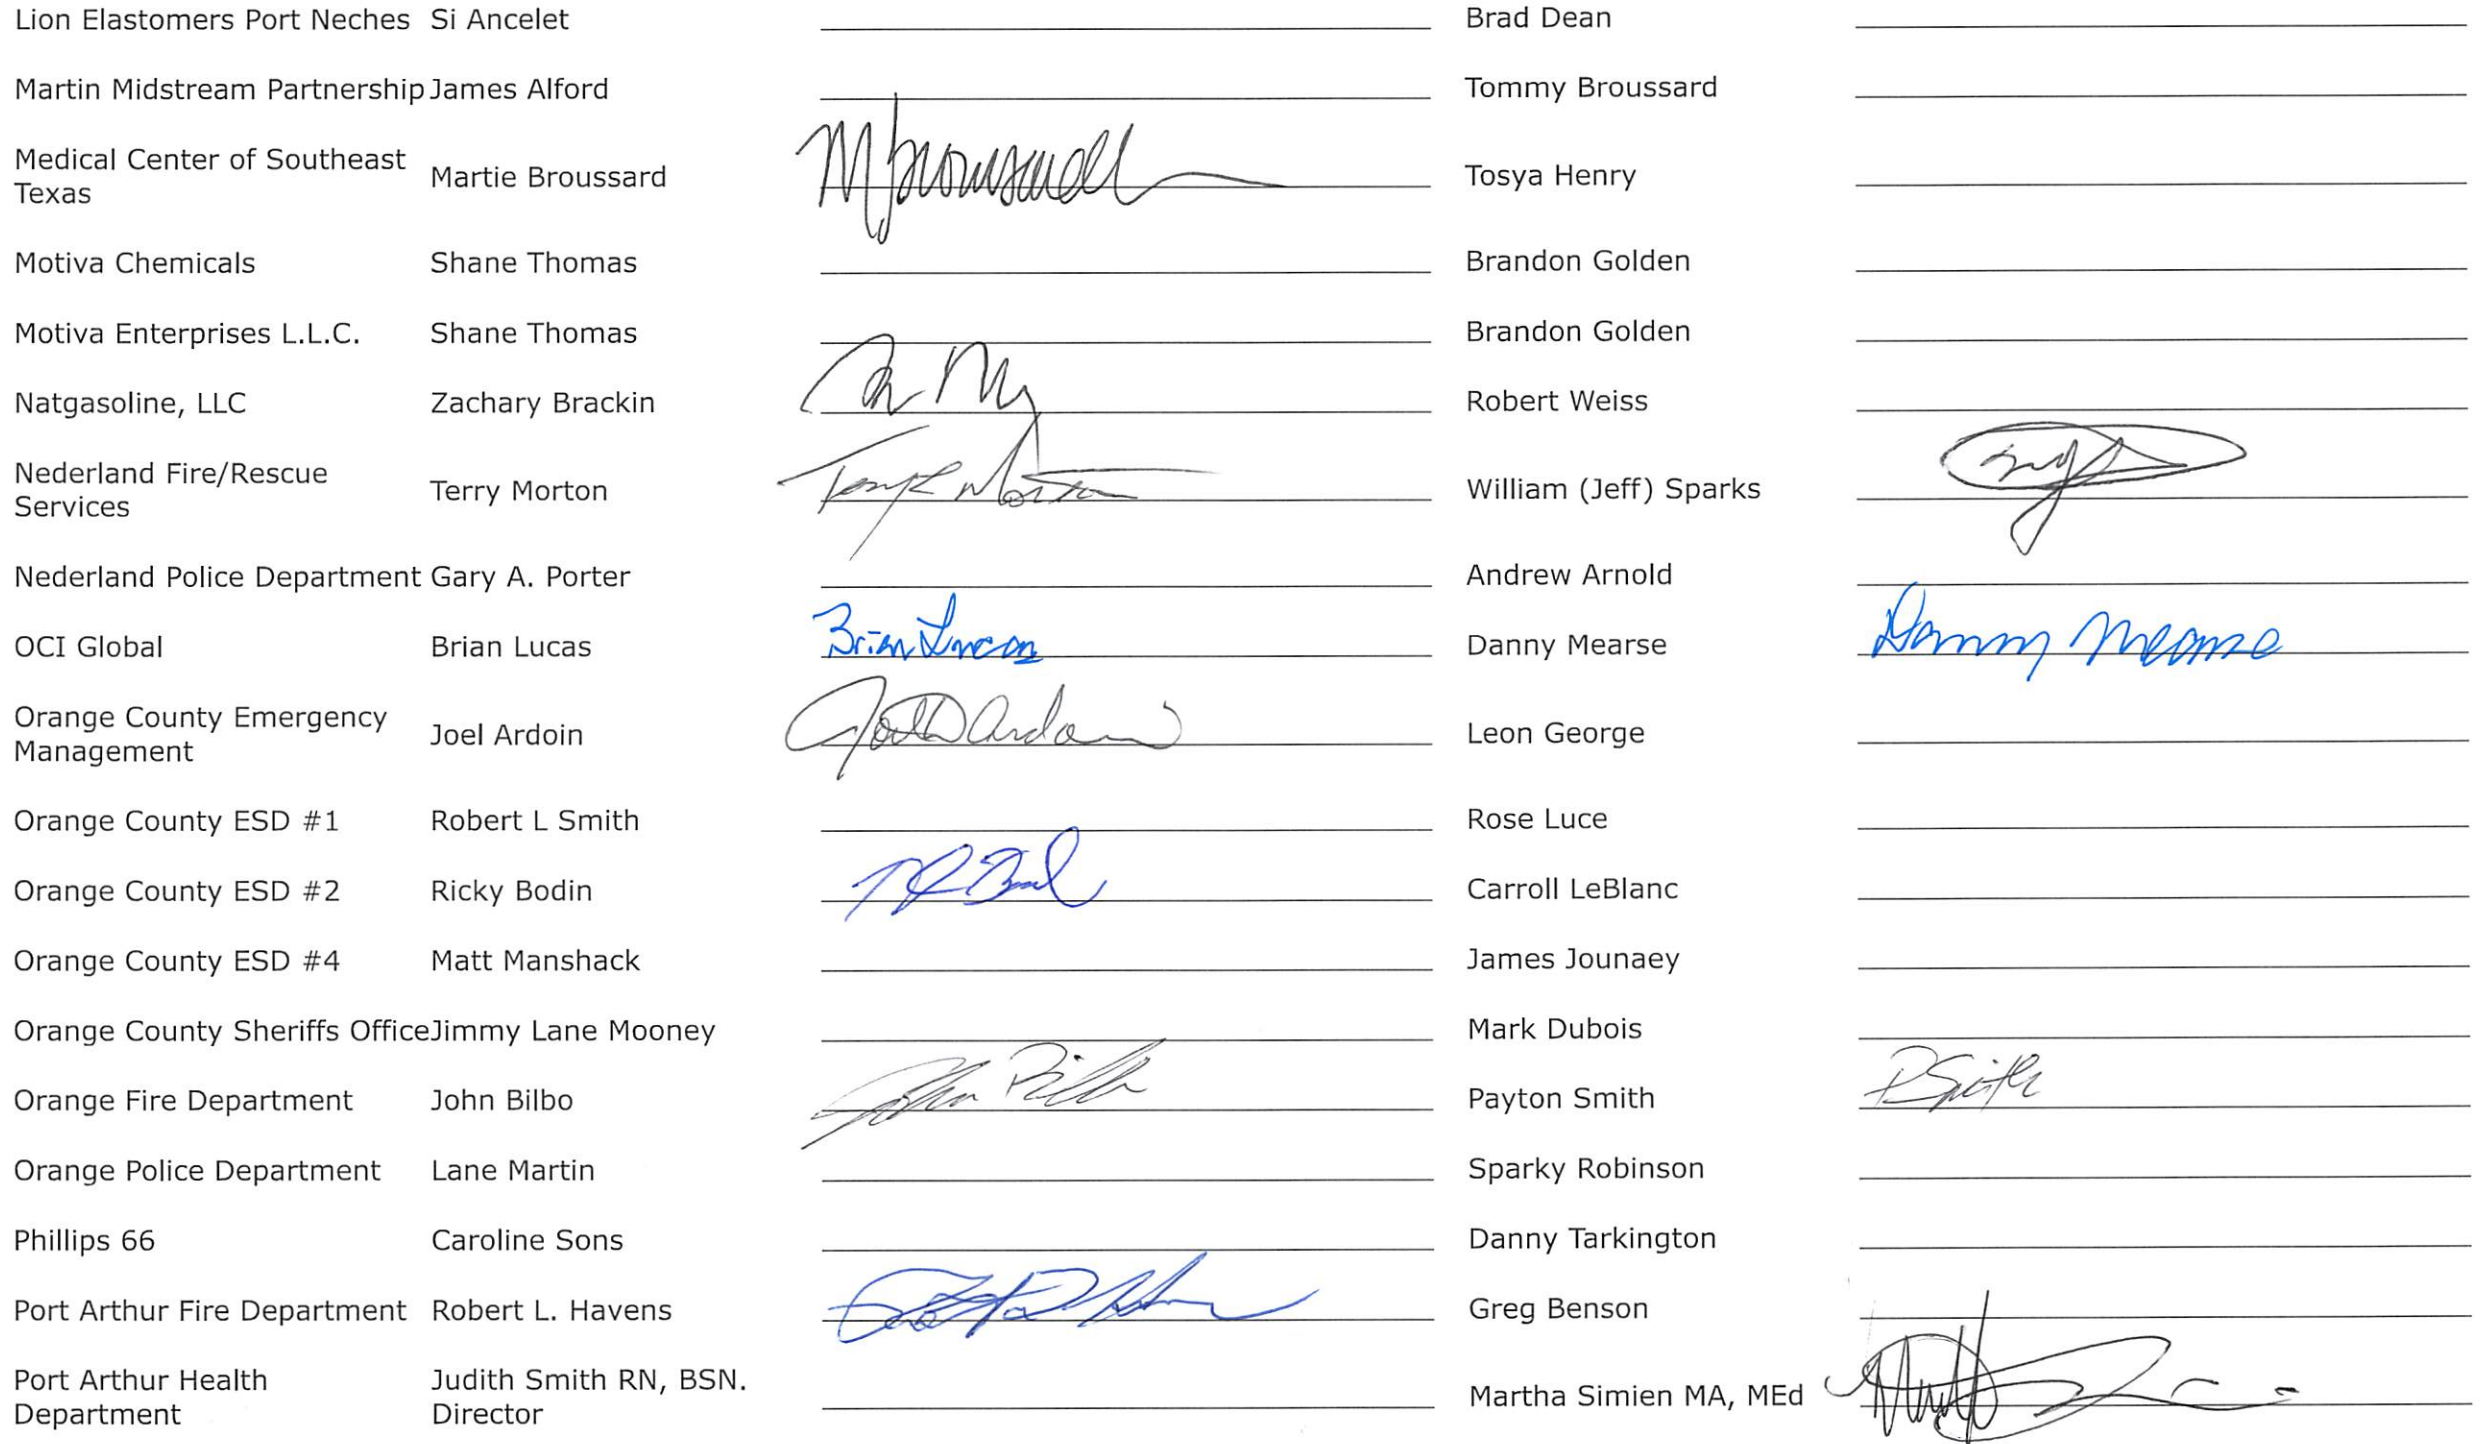 Lion Elastomers Port Neches Si Ancelet Brad Dean
Martin Midstream Partnership James Alford Tommy Broussard
Medical Center of Southeast Texas Martie Broussard Tosya Henry
Motiva Chemicals Shane Thomas Brandon Golden
Motiva Enterprises L.L.C. Shane Thomas Brandon Golden
Natgasoline, LLC Zachary Brackin Robert Weiss
Nederland Fire/Rescue Services Terry Morton William (Jeff) Sparks
Nederland Police Department Gary A. Porter Andrew Arnold
OCI Global Brian Lucas Brian Lucas Danny Mearse Danny Mearse
Orange County Emergency Management Joel Ardoin Leon George
Orange County ESD #1 Robert L Smith Rose Luce
Orange County ESD #2 Ricky Bodin Carroll LeBlanc
Orange County ESD #4 Matt Manshack James Jounaey
Orange County Sheriffs Office Jimmy Lane Mooney Mark Dubois
Orange Fire Department John Bilbo Payton Smith PSmith
Orange Police Department Lane Martin Sparky Robinson
Phillips 66 Caroline Sons Danny Tarkington
Port Arthur Fire Department Robert L. Havens Greg Benson
Port Arthur Health Department Judith Smith RN, BSN. Director Martha Simien MA, MEd